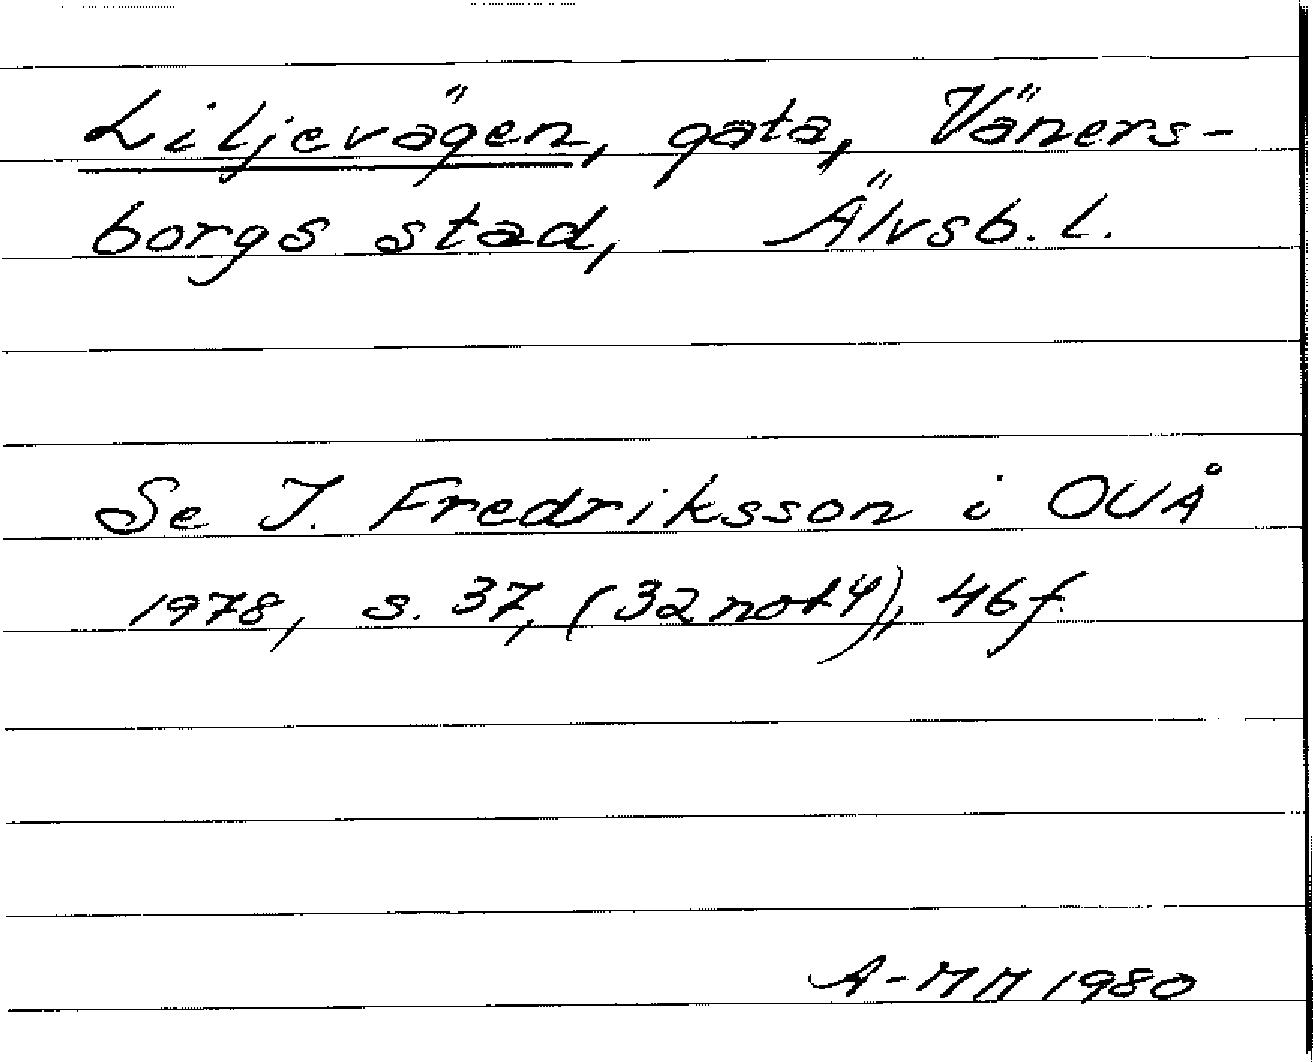 Liljevägen, gata, Väners-
borgs stad, Älvsb. l.
Se I. Fredriksson i OUÅ
1978, s. 37, (32 not 4), 46f.
A-MM 1980